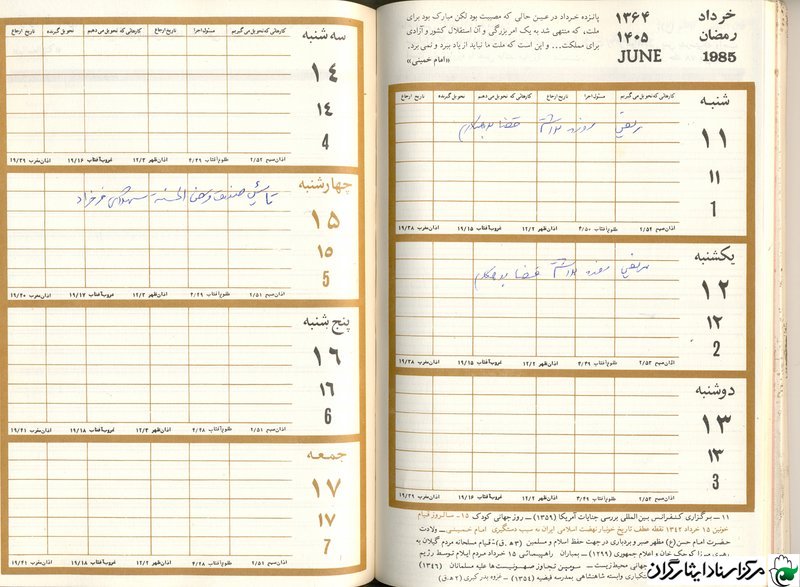 خرداد ۱۳۶۴
رمضان ۱۴۰۵
1985 JUNE
پانزده خرداد در عین حالی که مصیبت بود لکن مبارک بود برای
ملت، که منتهی شد به یک امر بزرگی و آن استقلال کشور و آزادی
برای مملکت... و این است که ملت ما نباید از یاد ببرد و نمی‌برد.
«امام خمینی»
شنبه
کارهائی که تحویل می گیریم مسئول اجرا تاریخ ارجاع کارهائی که تحویل می‌دهیم تحویل گیرنده تاریخ ارجاع
۱۱
۱۱
1
مریضی روزه نداشتم قضا بدهکارم
اذان صبح ۲/۵۲ طلوع آفتاب ۴/۵۰ اذان ظهر ۱۲/۲ غروب آفتاب ۱۹/۱۵ اذان مغرب ۱۹/۳۸
یکشنبه
۱۲
۱۲
2
مریضی روزه نداشتم قضا بدهکارم
اذان صبح ۲/۵۲ طلوع آفتاب ۴/۴۹ اذان ظهر ۱۲/۲ غروب آفتاب ۱۹/۱۵ اذان مغرب ۱۹/۳۸
دوشنبه
۱۳
۱۳
3
اذان صبح ۲/۵۲ طلوع آفتاب ۴/۴۹ اذان ظهر ۱۲/۲ غروب آفتاب ۱۹/۱۶ اذان مغرب ۱۹/۳۹
۱۱ – برگزاری کنفرانس بین‌المللی بررسی جنایات آمریکا (۱۳۵۹) – روز جهانی کودک ۱۵- سالروز قیام
خونین ۱۵ خرداد ۱۳۴۲ نقطه عطف تاریخ خونبار نهضت اسلامی ایران به سبب دستگیری امام خمینی – ولادت
حضرت امام حسن (ع) مظهر صبر و بردباری در جهت حفظ اسلام و مسلمین (۳ ه.ق) – قیام مسلحانه مردم گیلان به
رهبری میرزا کوچک خان و اعلام جمهوری (۱۲۹۹) – بمباران راهپیمائی ۱۵ خرداد مردم ایلام توسط رژیم
جهانی محیط زیست – سومین تجاوز صهیونیست‌ها علیه مسلمانان (۱۳۴۶)
وابسته شاهنشاهی به مدرسه فیضیه (۱۳۵۴) – غزوه بدر کبری (۲ ه.ق)
سه شنبه
کارهائی که تحویل می گیریم مسئول اجرا تاریخ ارجاع کارهائی که تحویل می‌دهیم تحویل گیرنده تاریخ ارجاع
۱۴
۱۴
4
اذان صبح ۲/۵۲ طلوع آفتاب ۴/۴۹ اذان ظهر ۱۲/۲ غروب آفتاب ۱۹/۱۶ اذان مغرب ۱۹/۳۹
چهارشنبه
۱۵
۱۵
5
تأسیس صندوق قرض الحسنه شهدای خرداد
اذان صبح ۲/۵۱ طلوع آفتاب ۴/۴۹ اذان ظهر ۱۲/۳ غروب آفتاب ۱۹/۱۷ اذان مغرب ۱۹/۴۰
پنج شنبه
۱۶
۱۶
6
اذان صبح ۲/۵۱ طلوع آفتاب ۴/۴۸ اذان ظهر ۱۲/۳ غروب آفتاب ۱۹/۱۸ اذان مغرب ۱۹/۴۱
جمعه
۱۷
۱۷
7
اذان صبح ۲/۵۱ طلوع آفتاب ۴/۴۸ اذان ظهر ۱۲/۳ غروب آفتاب ۱۹/۱۸ اذان مغرب ۱۹/۴۱
مرکز اسناد ایثارگران